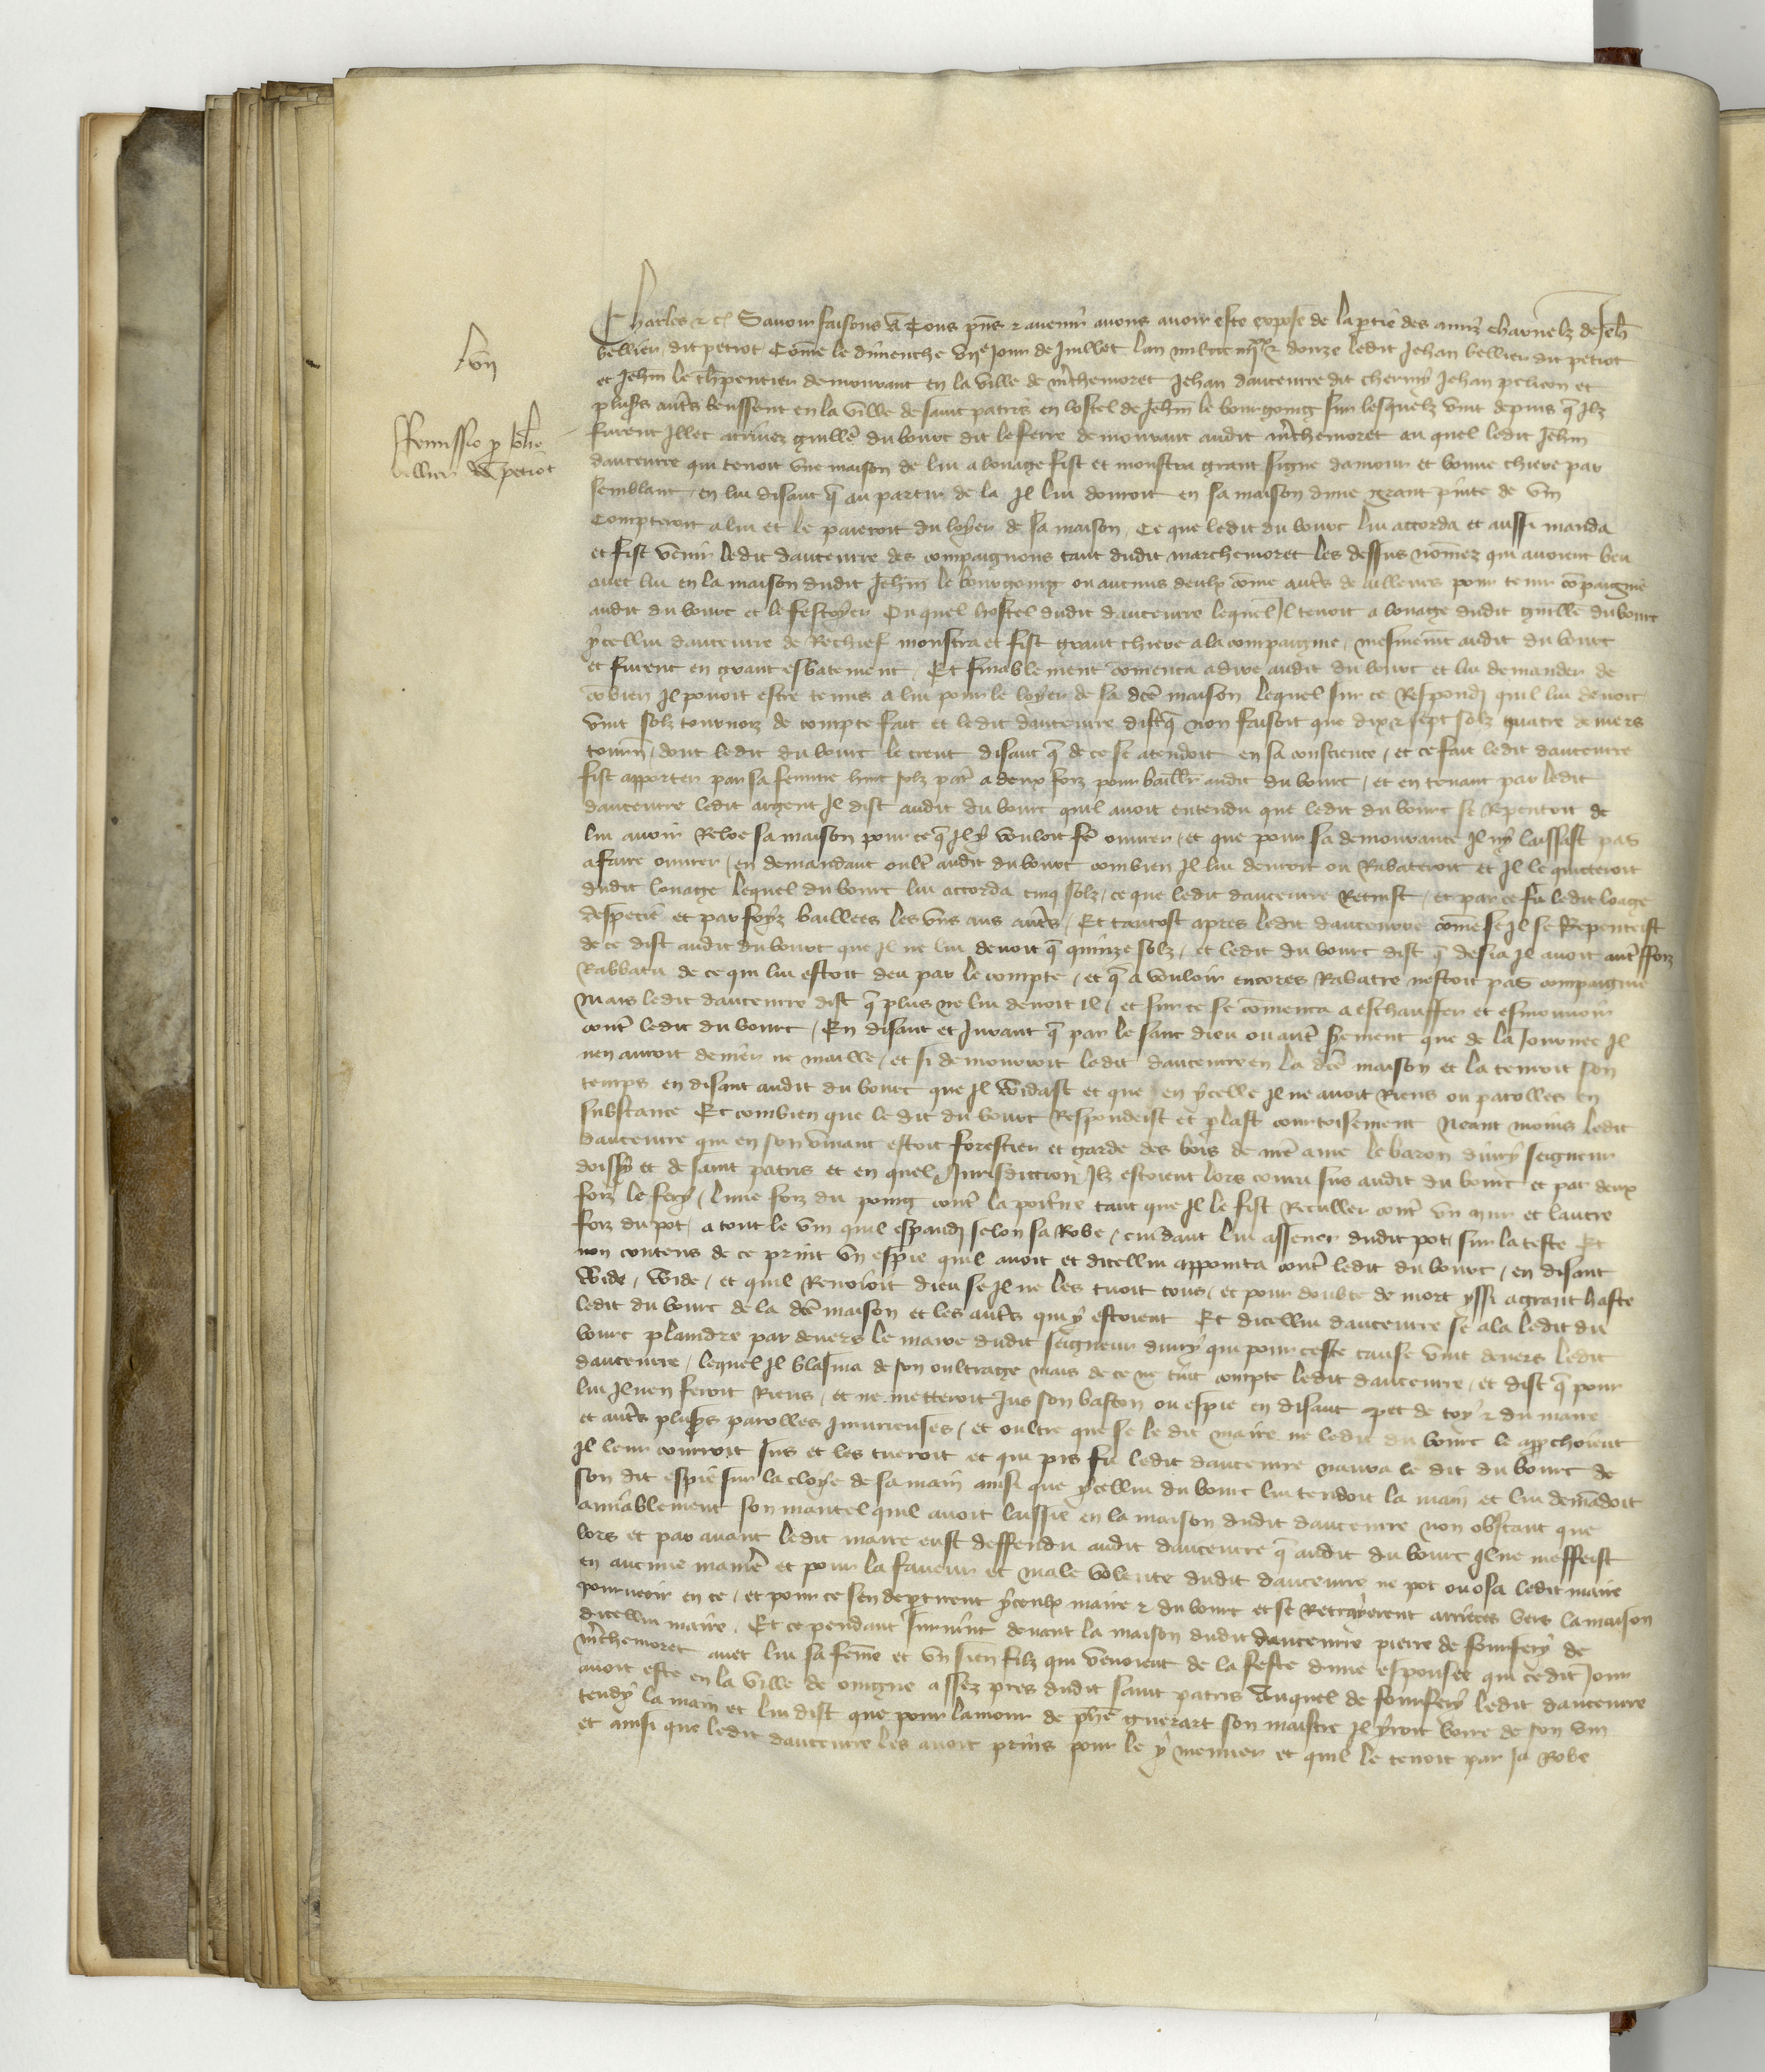 lvii
Remissio pro Johe
bellier dco petiot
Charles & c̃ Savoir faisons a Tous pñs & avenir avons avoir este expose de la ptie des amis charnelz de Jehã
bellier dit petiot Cõme le dimenche Jour de Juillet lan mil ccc iiiixx & donze ledit Jehan bellier dit petiot
et Jehm le chpentier demourant en la ville de mchemoret Jehan dauceurre dit Jehan pelicon et
plusrs autrs beussent en la ville de saint patris en lostel de Jehm le bourgoing sur lesquelz vint depuis q̃ Ilz
furent Illec arrivez guille du bourc dit le ferre demourant audit mrchemoret au quel ledit Jehm
dauceurre qui tenoit une maison de lui a louage fist et monstra grant signe damour et bonne chiere par
semblant en lui disant q̃ au partir de la Il lui donroit en sa maison dune grant pinte de vin
Compteroit a lui et le paieroit du loyer de sa maison Ce que ledit du bourc lui accorda et aussi manda
et fist venir ledit dauceurre des compaignons tant dudit marchemoret les dessus nõmez qui avoient beu
avec lui en la maison dudit Jehm le bourgoing ou aucuns deulx cõme autrs de ailleurs pour tenir cõpaignie
audit du bourc et le festoyer Ou quel hostel dudit dauceurre lequel Il tenoit a louage dudit guille du bourc
ycellui dauceurre de Rechief monstra et fist grant chiere a la compaignie mesmemt audit du bourc
et furent en grant esbatement Et finablement cõmenca a dire audit du bourc et lui demander de
cõbien Il povoit estre tenus a lui pour le loyer de sa dce maison lequel sur ce Respondi quil lui devoit
vint solz tournois de compte fait et ledit dauceurre dist q̃ non faisoit que dix & sept solz quatre deniers
tourn dont ledit du bourc le creut disant q̃ de ce se atendoit en sa conscience et ce fait ledit dauceurre
fist apporter par sa femme huit solz par a deux foiz pour baillr audit du bourc et en tenant par ledit
dauceurre ledit argent Il dist audit du bourc quil avoit entendu que ledit du bourc se Repentoit de
lui avoir Reloe sa maison pour ce q̃ Il y vouloit fe ouvrer et que pour sa demourance Il ny laissast pas
a faire ouvrer en demandant oultr audit du bourc combien Il lui devroit ou Rabateroit et Il le quicteroit
dudit louage lequel du bourc lui accorda cinq solz ce que ledit dauceurre Retinst et par ce fu ledit loage
despecie et par foyz baillees les uns aus autrs Et tantost apres ledit dauceurre cõme se Il se Repenteist
de ce dist audit du bourc que Il ne lui devoit q̃ quinze solz et ledit du bourc dist q̃ desia Il avoit autreffoiz
Rabbatu de ce qui lui estoit deu par le compte et q̃ a vouloir encores Rabatre nestoit pas compaignie
Mais ledit dauceurre dist q̃ plus ne lui devoit il et sur ce se cõmenca a eschauffer et esmouvoir
contr ledit du bourc En disant et Jurant q̃ par le sanc dieu ou autr serement que de la Journee Il
nen auroit denier ne maille et si demourroit ledit dauceurre en la dce maison et la tenroit son
temps en disant audit du bourc que Il Widast et que en ycelle Il ne avoit Riens ou parolles en
substance Et combien que le dit du bourc Respondeist et plast courtoisement Neant moins ledit
dauceurre qui en son vivant estoit forestier et garde des bois de nre ame le baron divry seigneur
doissy et de saint patris et en quel Jurisdiccion Ilz estoient lors couru sus audit du bourc et par deux
foiz le fery lune foiz du poing contr la poitrine tant que Il le fist Reculler contr un mur et lautre
foiz du pot a tout le vin quil espandi selon sa Robe cuidant lui assener dudit pot sur la teste Et
non contens de ce print un espie quil avoit et dicellui appointa contr ledit du bourc en disant
Wide Wide et quil Renoioit dieu se Il ne les tuoit tous et pour doubte de mort yssi a grant haste
ledit du bourc de la dce maison et les autrs qui y estoient Et dicellui dauceurre se ala ledit du
bourc plaindre par devers le maire dudit seigneur divry qui pour ceste cause vint devers ledit
dauceurre lequel Il blasma de son oultrage mais de ce ne tint compte ledit dauceurre et dist q̃ pour
lui Il nen feroit Riens et ne metteroit Jus son baston ou espie en disant pet de toy & du maire
et autrs plusrs parolles Injurieuses et oultre que se le dit maire ne ledit du bourc le appchoient
Il leur courroit sus et les tueroit et qui pis fu ledit dauceurre navra le dit du bourc de
son dit espie sur la cloye de sa main ainsi que ycellui du bourc lui tendoit la main et lui demãdoit
amiablement son mantel quil avoit laissie en la maison dudit dauceurre non obstant que
lors et par avant ledit maire eust deffendu audit dauceurre q̃ audit du bourc Il ne meffeist
en aucune manie et pour la faveur et male volente dudit dauceurre ne pot ou osa ledit maire
pourveoir en ce et pour ce sen deptirent yceulx maire & du bourc et se Retrayerent arrieres vers la maison
dicellui maire Et ce pendant survint devant la maison dudit dauceurre pierre de sonfery de
mrchemoret avec lui sa femme et un sien filz qui venoient de la feste dune espousee qui ce dit Jour
avoit este en la ville de assez pres dudit saint patris Auquel de sonfery ledit dauceurre
tendy la main et lui dist que pour lamour de phe guerart son maistre Il yroit boire de son vin
et ainsi que ledit dauceurre les avoit prins pour le y mener et quil le tenoit par sa Robe